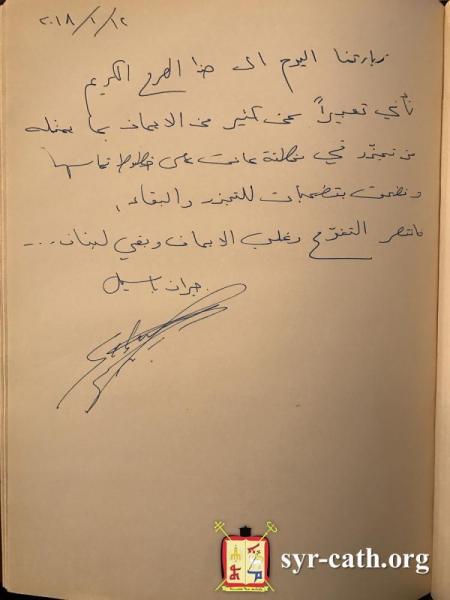 ٢٠١٨/١/١٢
زيارتنا اليوم الى هذا الصرح الكريم
تأتي تعبيراً عن كثير من الايمان بما يمثله
من تجذّر في منطقة عانت على خطوط تماسها
بتضحيات للتجذر والبقاء،
فانتصر وغلب الايمان وبقي لبنان....
جبران باسيل
syr-cath.org